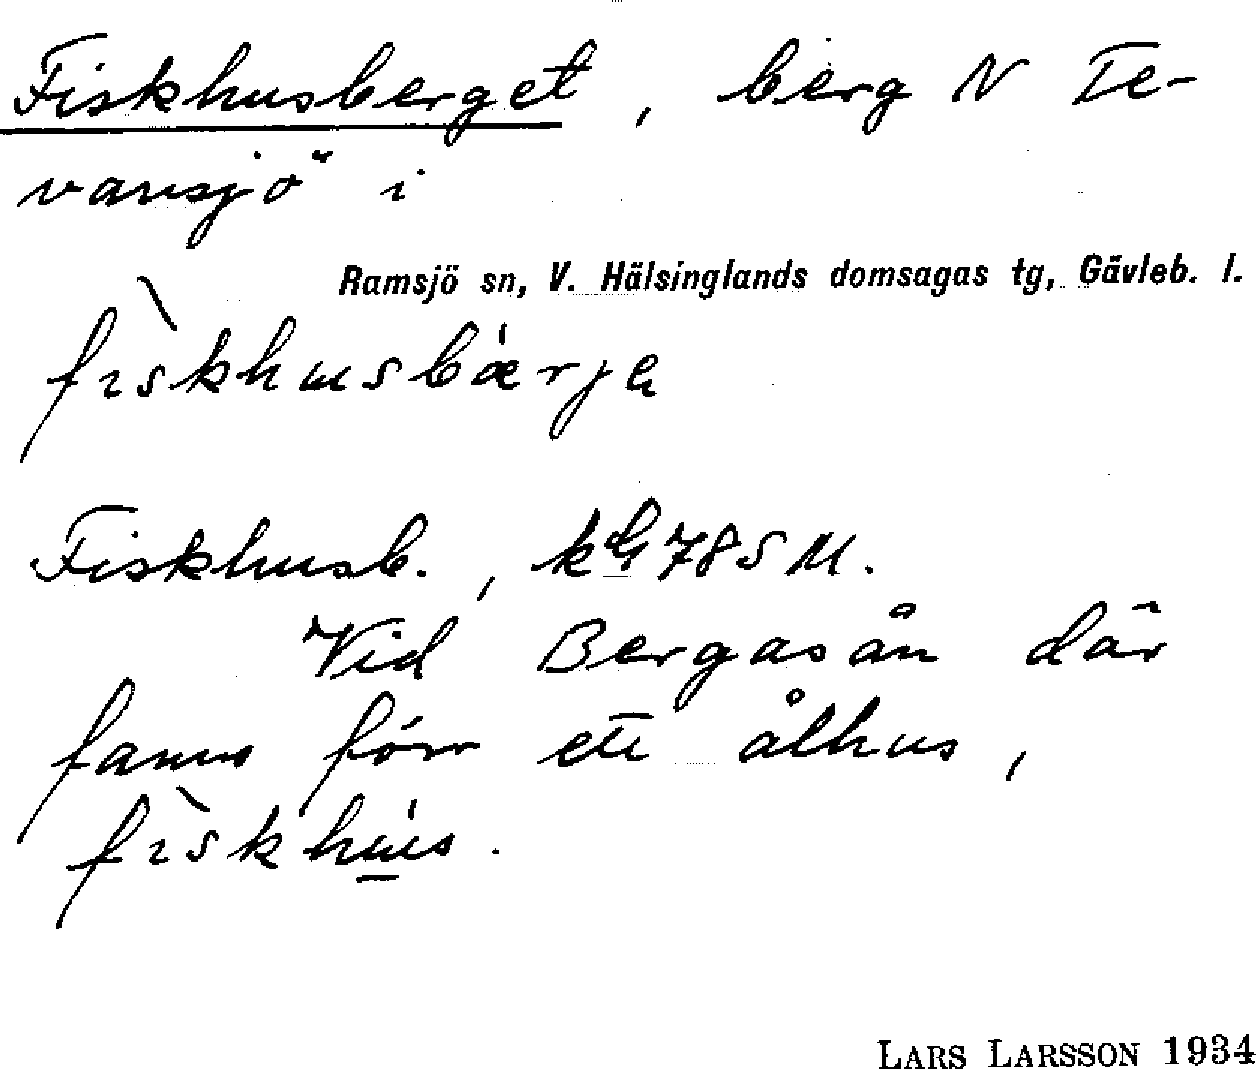 Fiskhusberget, berg N Te-
vansjö i
Ramsjö sn, V. Hälsinglands domsagas tg, Gävleb. l.
fìskhusbǽrja
Fiskhusb., 785 M.
Vid Bergasån där
fanns förr ett ålhus,
fìskhús.
LARS LARSSON 1934